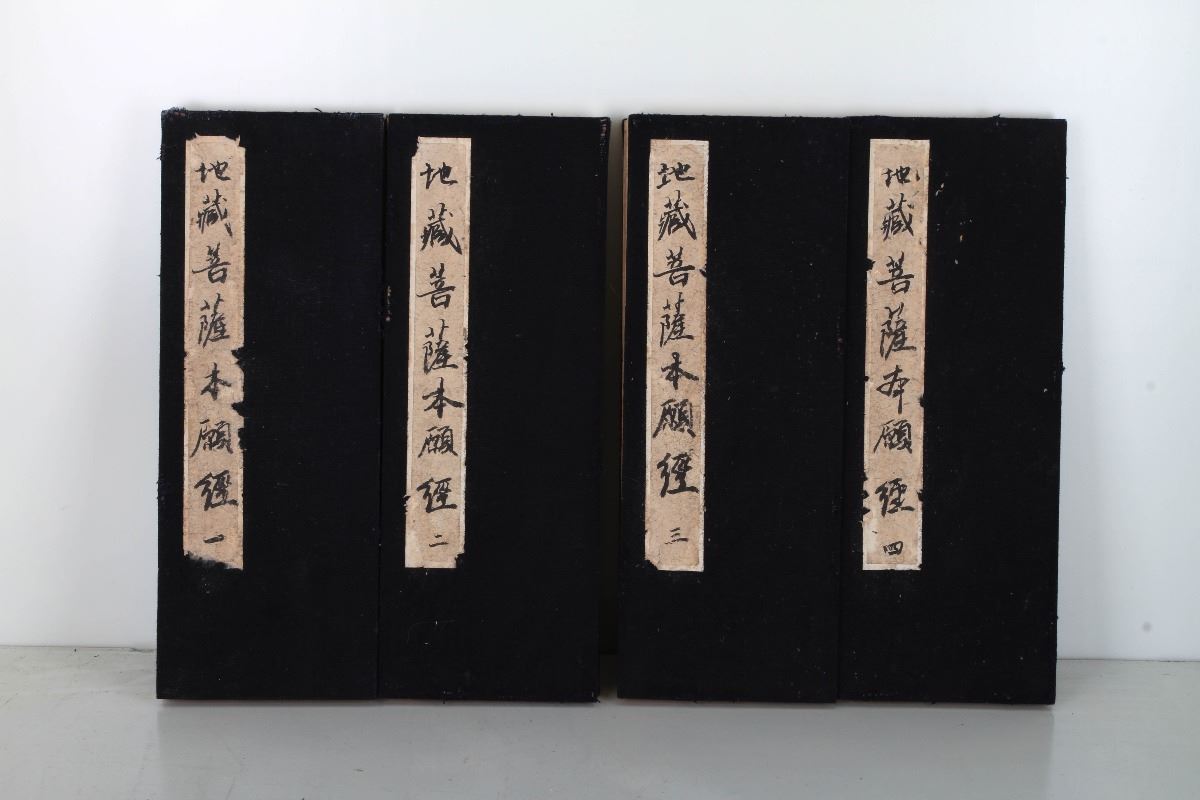 地藏菩薩本願經 一
地藏菩薩本願經 二
地藏菩薩本願經 三
地藏菩薩本願經 四